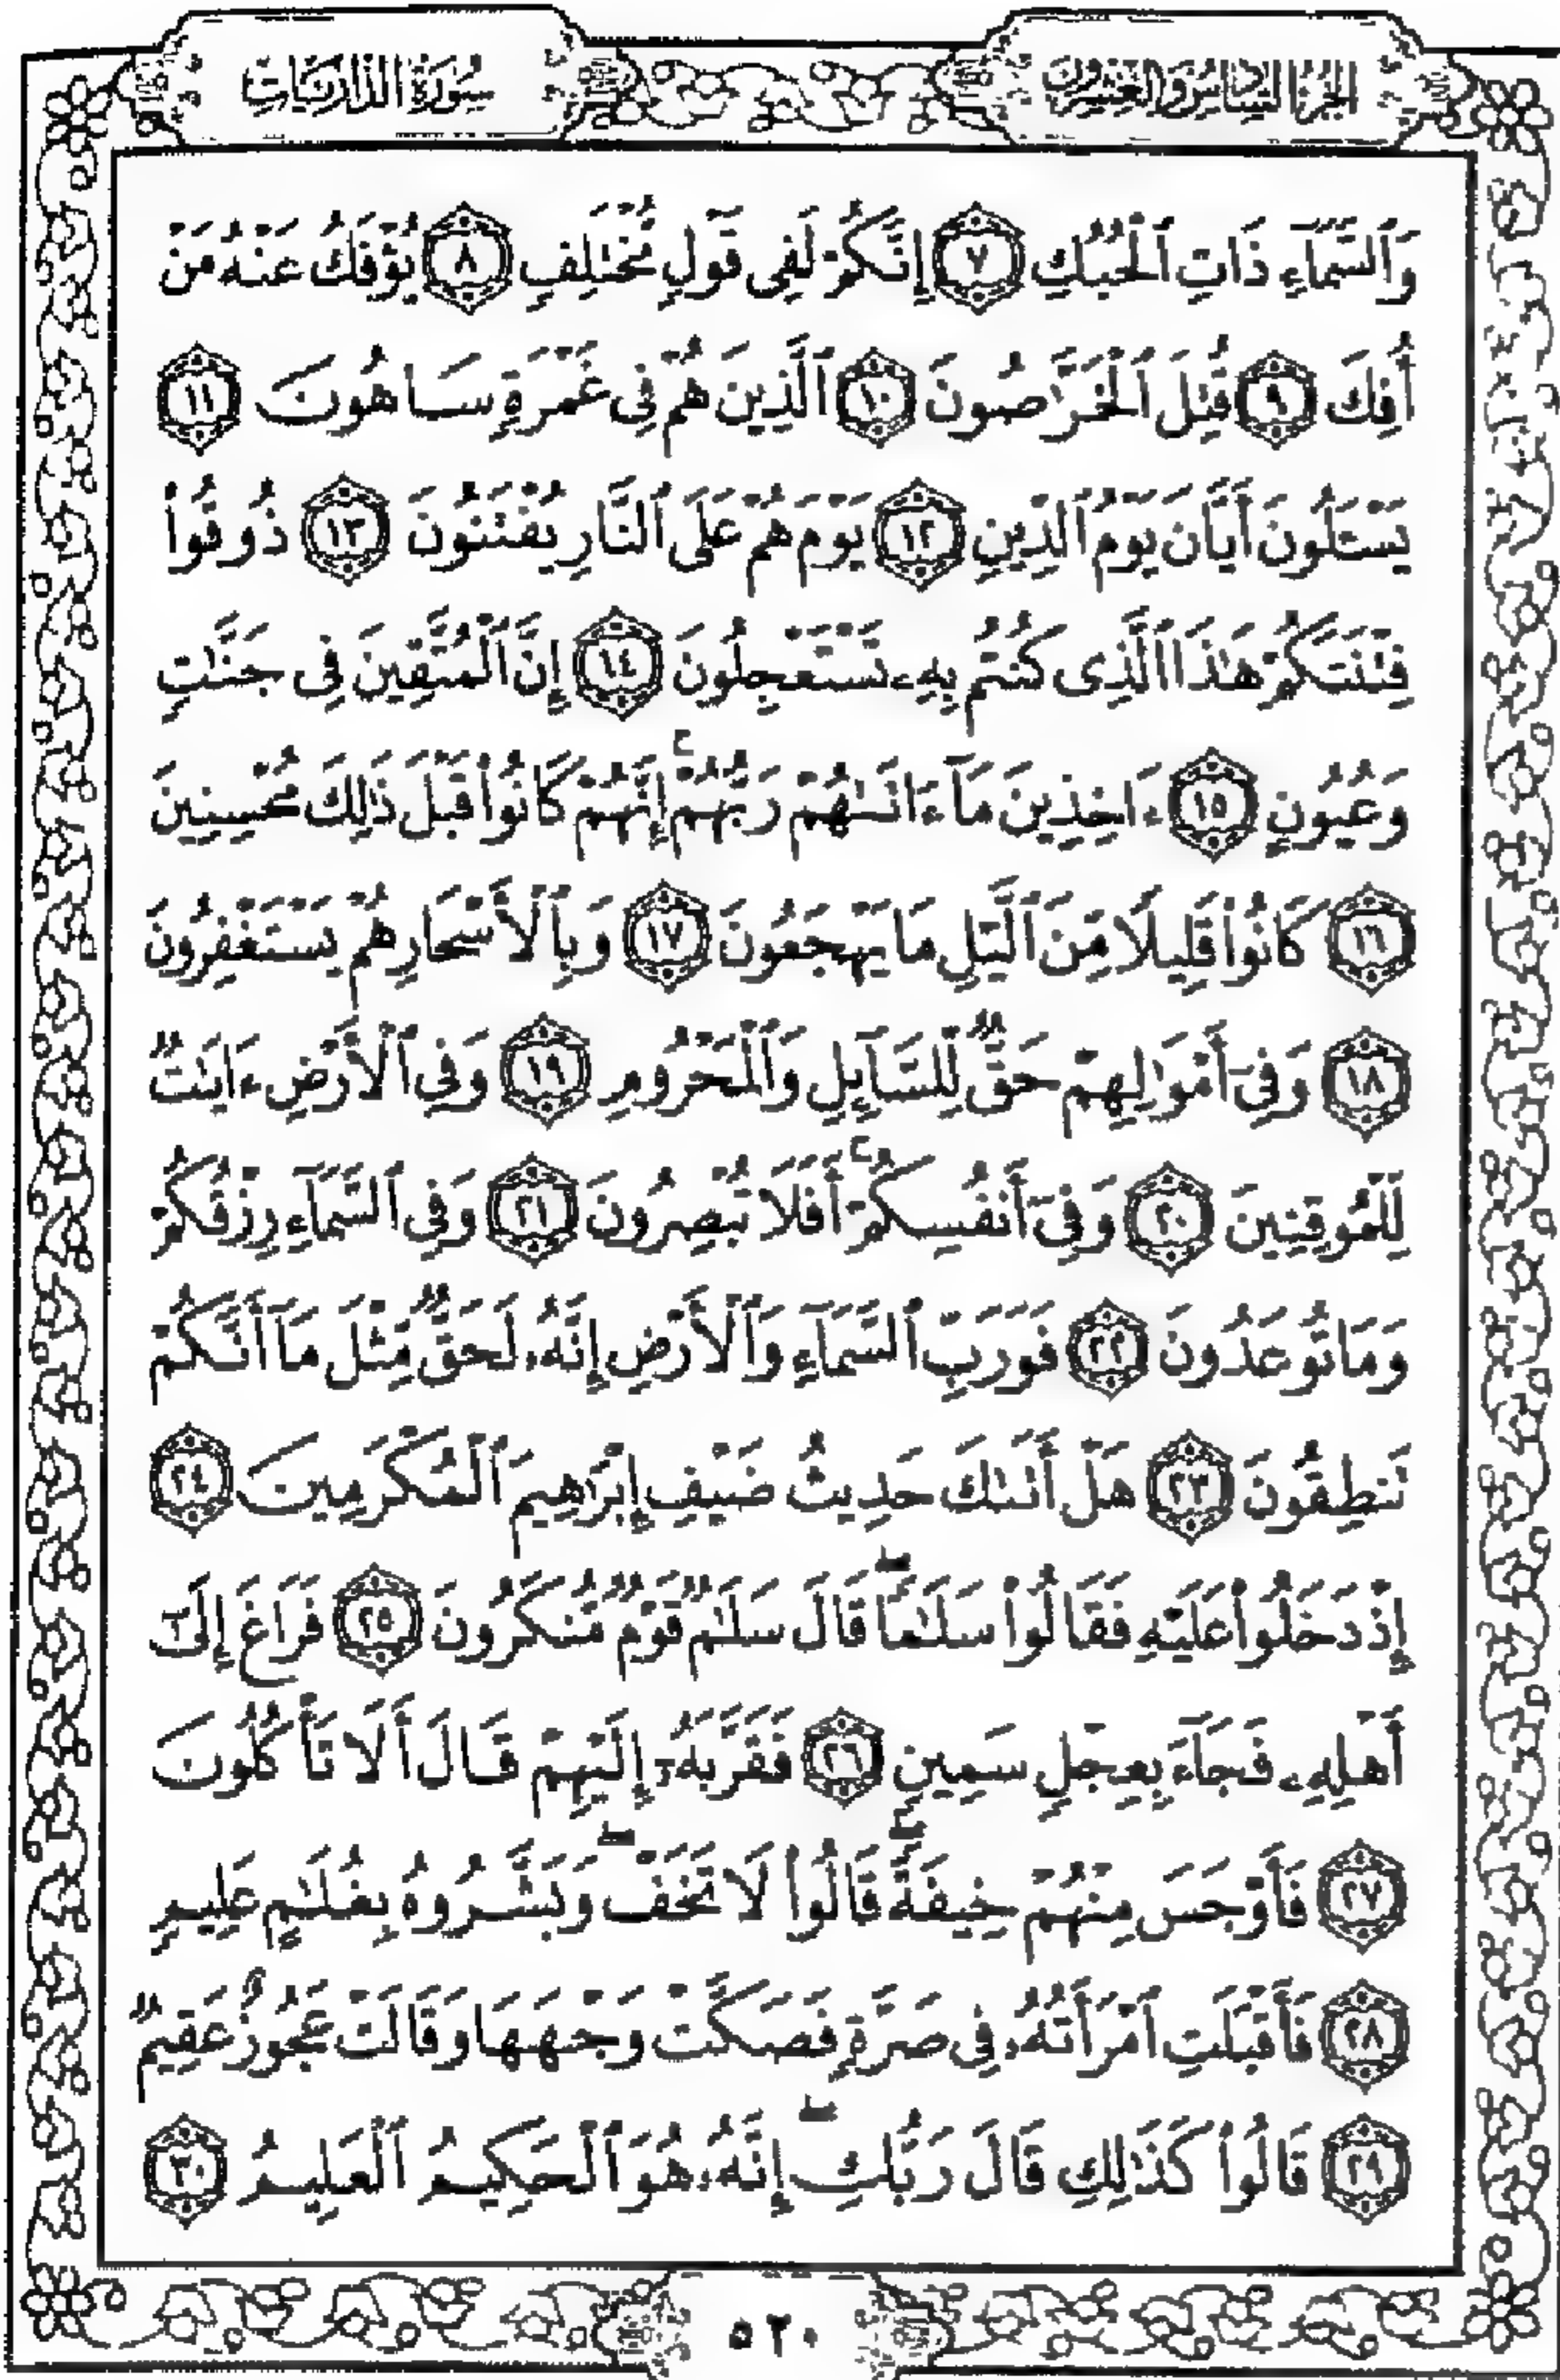 الجزء السادس والعشرون
سورة الذاريات
وَٱلسَّمَآءِ ذَاتِ ٱلْحُبُكِ ٧ إِنَّكُمْ لَفِى قَوْلٍ مُّخْتَلِفٍ ٨ يُؤْفَكُ عَنْهُ مَنْ
أُفِكَ ٩ قُتِلَ ٱلْخَرَّٰصُونَ ١٠ ٱلَّذِينَ هُمْ فِى غَمْرَةٍ سَاهُونَ ١١
يَسْـَٔلُونَ أَيَّانَ يَوْمُ ٱلدِّينِ ١٢ يَوْمَ هُمْ عَلَى ٱلنَّارِ يُفْتَنُونَ ١٣ ذُوقُوا۟
فِتْنَتَكُمْ هَٰذَا ٱلَّذِى كُنتُم بِهِۦ تَسْتَعْجِلُونَ ١٤ إِنَّ ٱلْمُتَّقِينَ فِى جَنَّٰتٍ
وَعُيُونٍ ١٥ ءَاخِذِينَ مَآ ءَاتَىٰهُمْ رَبُّهُمْ ۚ إِنَّهُمْ كَانُوا۟ قَبْلَ ذَٰلِكَ مُحْسِنِينَ
١٦ كَانُوا۟ قَلِيلًا مِّنَ ٱلَّيْلِ مَا يَهْجَعُونَ ١٧ وَبِٱلْأَسْحَارِ هُمْ يَسْتَغْفِرُونَ
١٨ وَفِىٓ أَمْوَٰلِهِمْ حَقٌّ لِّلسَّآئِلِ وَٱلْمَحْرُومِ ١٩ وَفِى ٱلْأَرْضِ ءَايَٰتٌ
لِّلْمُوقِنِينَ ٢٠ وَفِىٓ أَنفُسِكُمْ ۚ أَفَلَا تُبْصِرُونَ ٢١ وَفِى ٱلسَّمَآءِ رِزْقُكُمْ
وَمَا تُوعَدُونَ ٢٢ فَوَرَبِّ ٱلسَّمَآءِ وَٱلْأَرْضِ إِنَّهُۥ لَحَقٌّ مِّثْلَ مَآ أَنَّكُمْ
تَنطِقُونَ ٢٣ هَلْ أَتَىٰكَ حَدِيثُ ضَيْفِ إِبْرَٰهِيمَ ٱلْمُكْرَمِينَ ٢٤
إِذْ دَخَلُوا۟ عَلَيْهِ فَقَالُوا۟ سَلَٰمًا ۖ قَالَ سَلَٰمٌ قَوْمٌ مُّنكَرُونَ ٢٥ فَرَاغَ إِلَىٰٓ
أَهْلِهِۦ فَجَآءَ بِعِجْلٍ سَمِينٍ ٢٦ فَقَرَّبَهُۥٓ إِلَيْهِمْ قَالَ أَلَا تَأْكُلُونَ
٢٧ فَأَوْجَسَ مِنْهُمْ خِيفَةً ۖ قَالُوا۟ لَا تَخَفْ ۖ وَبَشَّرُوهُ بِغُلَٰمٍ عَلِيمٍ
٢٨ فَأَقْبَلَتِ ٱمْرَأَتُهُۥ فِى صَرَّةٍ فَصَكَّتْ وَجْهَهَا وَقَالَتْ عَجُوزٌ عَقِيمٌ
٢٩ قَالُوا۟ كَذَٰلِكِ قَالَ رَبُّكِ ۖ إِنَّهُۥ هُوَ ٱلْحَكِيمُ ٱلْعَلِيمُ ٣٠
٥٢٠